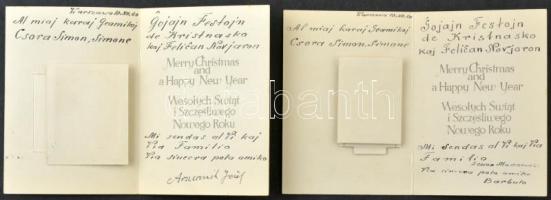 Warszawa
Al miaj karaj Gramikaj
Csora Simon, Simone
Ĝojajn Festojn
de Kristnasko
kaj Feliĉan Novjaron
Merry Christmas
and
a Happy New Year
Wesołych Świąt
i Szczęśliwego
Nowego Roku
Mi sendas al Vi kaj
Via Familio
Via sincera pola amiko
Warszawa
Al miaj karaj Gramikaj
Csora Simon, Simone
Ĝojajn Festojn
de Kristnasko
kaj Feliĉan Novjaron
Merry Christmas
and
a Happy New Year
Wesołych Świąt
i Szczęśliwego
Nowego Roku
Mi sendas al Vi kaj Via
Familio
Via sincera pola amiko
Barbula